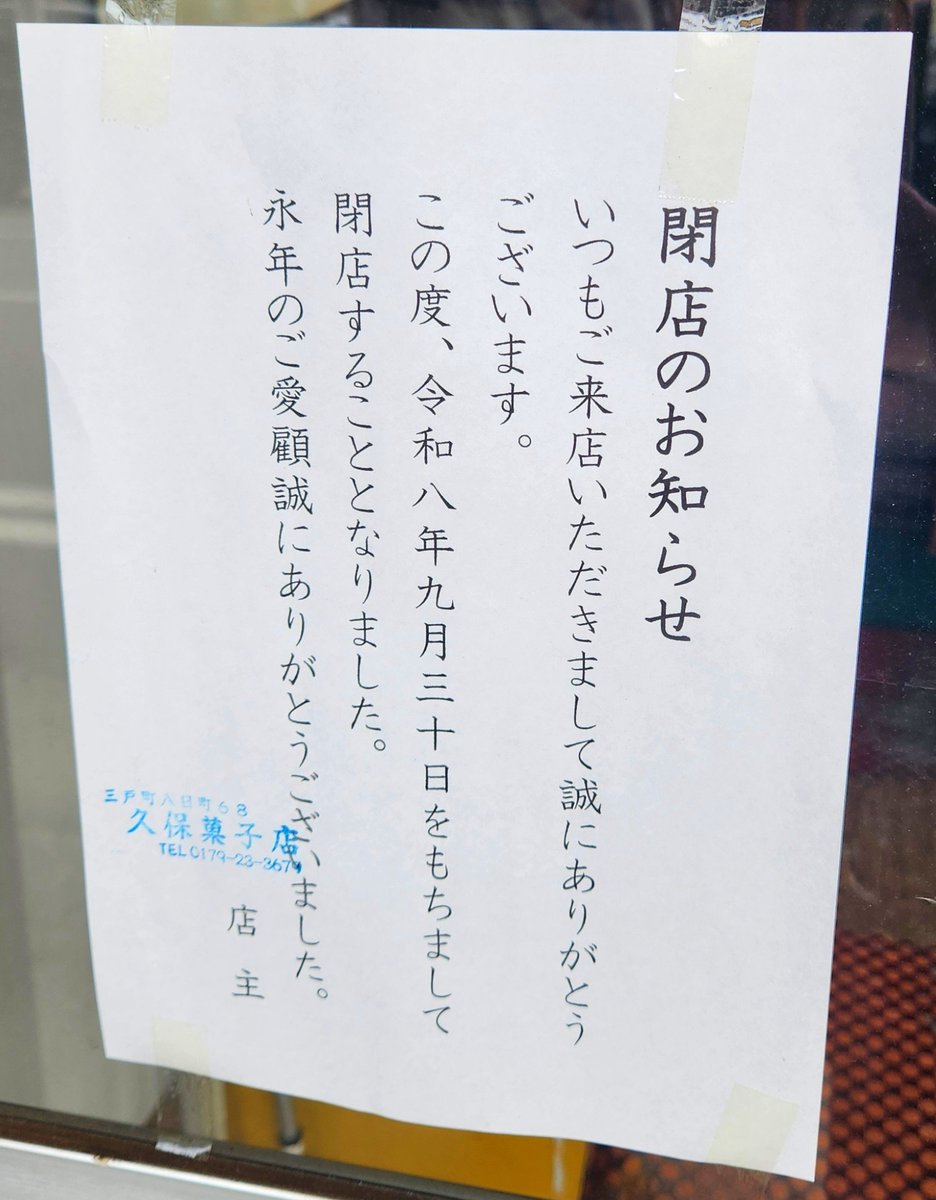 閉店のお知らせ
いつもご来店いただきまして誠にありがとう
ございます。
この度、令和八年九月三十日をもちまして
閉店することとなりました。
永年のご愛顧誠にありがとうございました。
三戸町八日町68
久保菓子店
TEL 0179-23-3679
店主